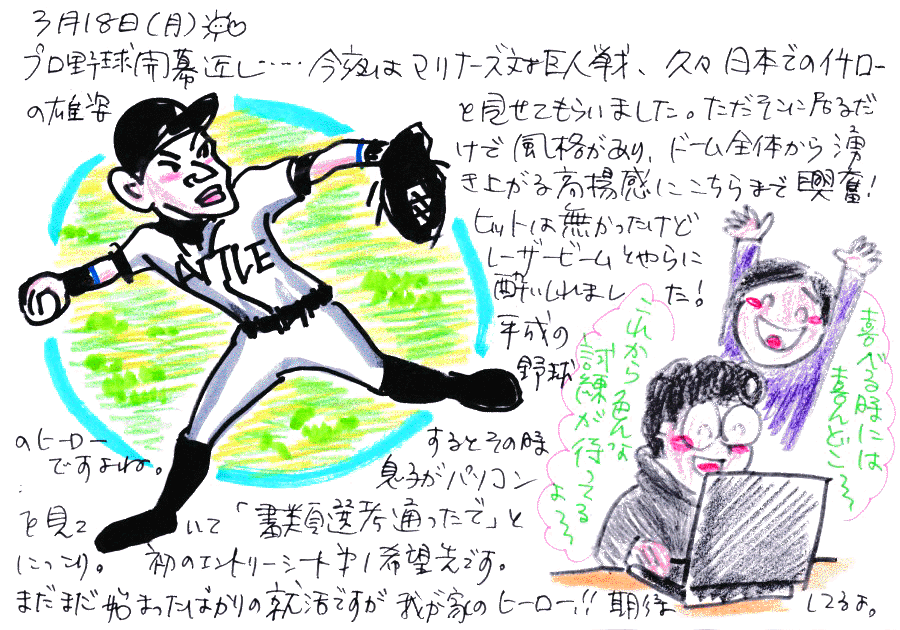 3月18日(月)
プロ野球開幕近し……今夜はマリナーズ対巨人戦、久々日本でのイチロー
の雄姿
を見せてもらいました。ただそこに居るだ
けで風格があり、ドーム全体から湧
き上がる高揚感にこちらまで興奮!
ヒットは無かったけど
レーザービームとやらに
酔いしれました!
平成の
野球
のヒーロー
ですよね。
ATTLE
するとその時
息子がパソコン
を見ていて「書類選考通ったで」と
にっこり。初のエントリーシート中1希望先です。
まだまだ始まったばかりの就活ですが我が家のヒーロー!!期待してるよ。
喜べる時には
喜んどこ〜〜
これから色んな
試練が待ってる
よ〜〜